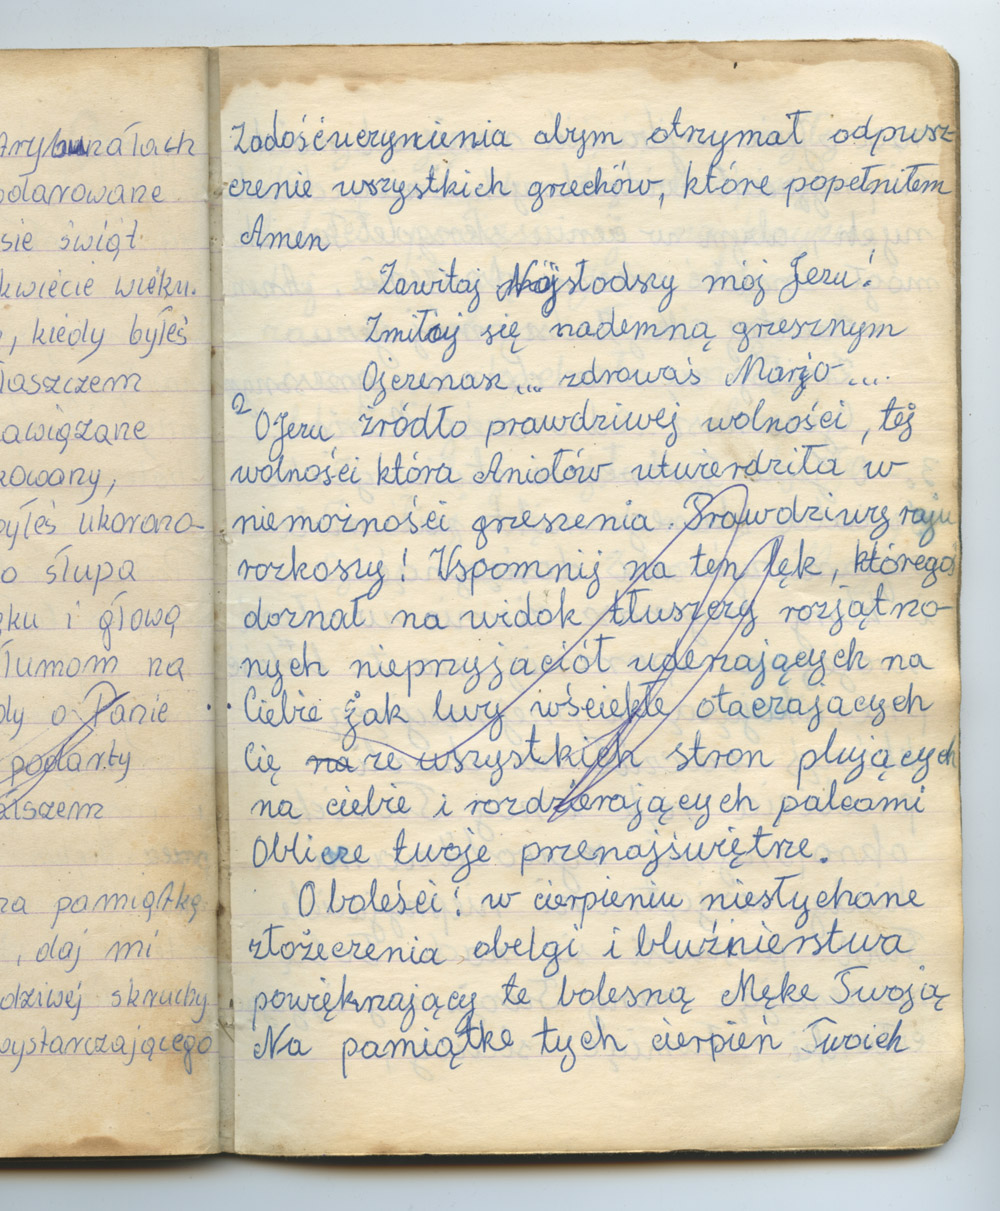 bunałach
odarowane
sie świąt
kwiecie wieku.
, kiedy byłeś
łaszczem
awiązane
kowany,
byłeś ukorono-
o słupa
ęku i głową
łumom na
dy o Panie
podarty
alszem
za pamiątkę
, daj mi
dziwej skruchy
wystarczającego
Zadośćuczynienia abym otrzymał odpusz-
czenie wszystkich grzechów, które popełniłem
Amen
Zawitaj Najsłodszy mój Jezu!
Zmiłuj się nademną grzesznym
Ojczenasz... zdrowaś Marjo....
2 O Jezu źródło prawdziwej wolności, tej
wolności która Aniołów utwierdziła w
niemożności grzeszenia. Prawdziwy raju
rozkoszy! Wspomnij na ten lęk, któregoś
doznał na widok tłuszczy rozjątrzo-
nych nieprzyjaciół uderzających na
Ciebie jak lwy wściekłe otaczających
Cię na ze wszystkich stron plujących
na ciebie i rozdzierających palcami
Oblicze twoje przenajświętrze.
O boleści! w cierpieniu niesłychane
złożeczenia obelgi i bluźnierstwa
powiększający te bolesną Mękę Twoją
Na pamiątke tych cierpień Twoich